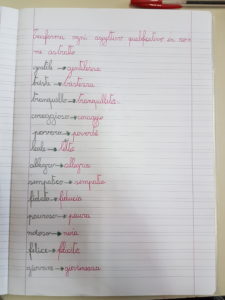 trasforma ogni aggettivo qualificativo in no
me astratto
gentile → gentilezza
triste → tristezza
tranquillo → tranquillità
coraggioso → coraggio
povero → povertà
leale →
allegro → allegria
simpatico → simpatia
fidato → fiducia
pauroso → paura
noioso → noia
felice → felicità
giovane → giovinezza